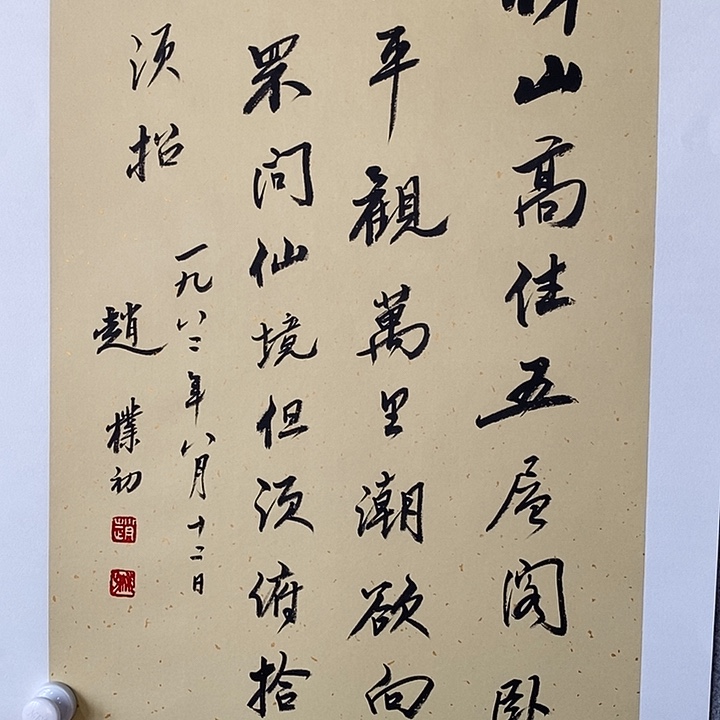 山高佳五層閣臥
平觀萬里潮欲向
眾問仙境但須俯拾
須招
一九八二年八月十二日
趙樸初